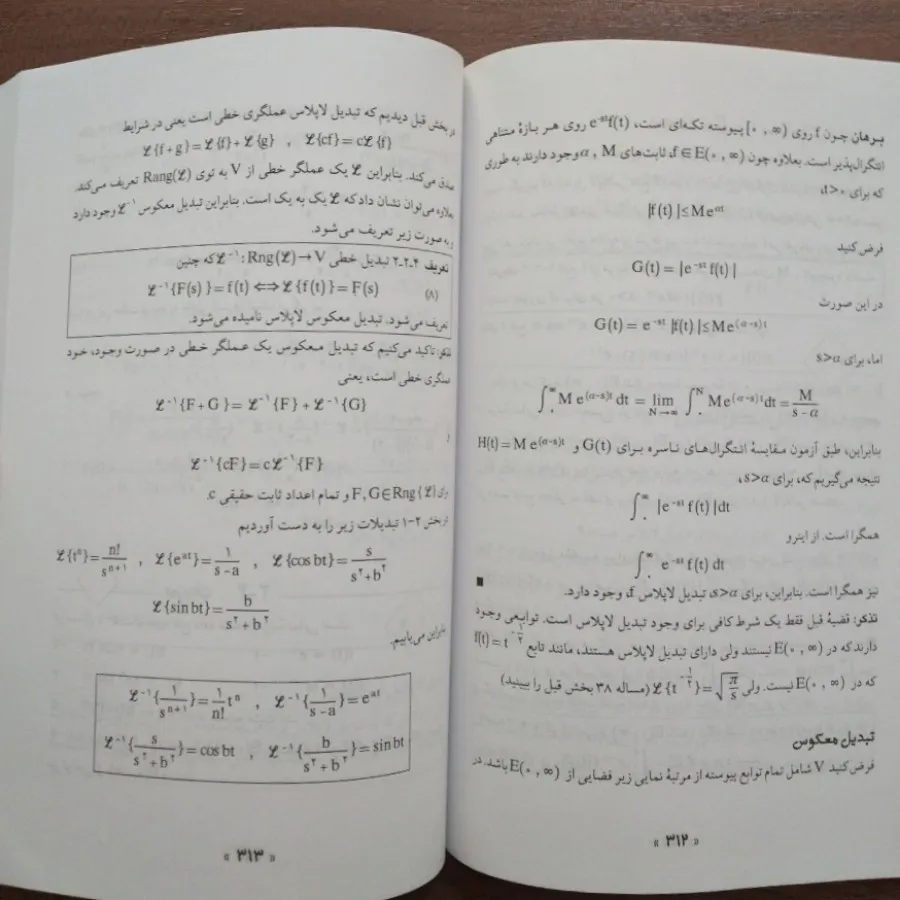 برهان چون f روی [۰ , ∞) پیوسته تکه‌ای است، e⁻ˢᵗf(t) روی هر بازهٔ متناهی
انتگرال‌پذیر است. بعلاوه چون f∈E(۰ , ∞)، ثابت‌های M , α وجود دارند به طوری
که برای t>۰،
|f(t)|≤Me^{αt}
فرض کنید
G(t)= |e^{-st} f(t)|
در این صورت
G(t)= e^{-st} |f(t)|≤Me^{(α-s)t}
اما، برای s>α
∫_۰^∞ M e^{(α-s)t} dt = lim_{N→∞} ∫_۰^N Me^{(α-s)t}dt = M/(s-α)
بنابراین، طبق آزمون مقایسهٔ انتگرال‌های ناسره برای G(t) و H(t)=M e^{(α-s)t}
نتیجه می‌گیریم که، برای s>α،
∫_۰^∞ |e^{-st} f(t)|dt
همگرا است. از اینرو
∫_۰^∞ e^{-st} f(t) dt
نیز همگرا است. بنابراین، برای s>α، تبدیل لاپلاس f، وجود دارد. ■
تذکر: قضیهٔ قبل فقط یک شرط کافی برای وجود تبدیل لاپلاس است. توابعی وجود
دارند که در E(۰ , ∞) نیستند ولی دارای تبدیل لاپلاس هستند، مانند تابع f(t)=t^{-۱/۲}
که در E(۰ , ∞) نیست. ولی ℒ{t^{-۱/۲}}=√(π/s) (مساله ۳۸ بخش قبل را ببینید)
تبدیل معکوس
فرض کنید V شامل تمام توابع پیوسته از مرتبهٔ نمایی زیر فضایی از E(۰ , ∞) باشد. در
« ۳۱۲ »
بخش قبل دیدیم که تبدیل لاپلاس عملگری خطی است یعنی در شرایط
ℒ{f+g}=ℒ{f}+ℒ{g} , ℒ{cf}=cℒ{f}
صدق می‌کند. بنابراین ℒ یک عملگر خطی از V به توی Rang(ℒ) تعریف می‌کند.
بعلاوه می‌توان نشان داد که ℒ یک به یک است. بنابراین تبدیل معکوس ℒ⁻¹ وجود دارد
و به صورت زیر تعریف می‌شود.
تعریف ۴ـ۲ـ۲ تبدیل خطی ℒ⁻¹: Rng(ℒ)→V که چنین
ℒ⁻¹{F(s)}=f(t)⟺ℒ{f(t)}=F(s) (۸)
تعریف می‌شود. تبدیل معکوس لاپلاس نامیده می‌شود.
تذکر: تاکید می‌کنیم که تبدیل معکوس یک عملگر خطی در صورت وجود، خود
عملگری خطی است، یعنی
ℒ⁻¹{F+G}= ℒ⁻¹{F}+ℒ⁻¹{G}
ℒ⁻¹{cF}=cℒ⁻¹{F}
برای F,G∈Rng{ℒ} و تمام اعداد ثابت حقیقی c.
بخش ۲-۱ تبدیلات زیر را به دست آوردیم
ℒ{tⁿ}=n!/s^{n+۱} , ℒ{e^{at}}=۱/(s-a) , ℒ{cos bt}=s/(s^۲+b^۲)
ℒ{sin bt}=b/(s^۲+b^۲)
بنابراین می‌یابیم.
ℒ⁻¹{۱/s^{n+۱}}=(۱/n!)tⁿ , ℒ⁻¹{۱/(s-a)}=e^{at}
ℒ⁻¹{s/(s^۲+b^۲)}=cos bt , ℒ⁻¹{b/(s^۲+b^۲)}=sin bt
« ۳۱۳ »